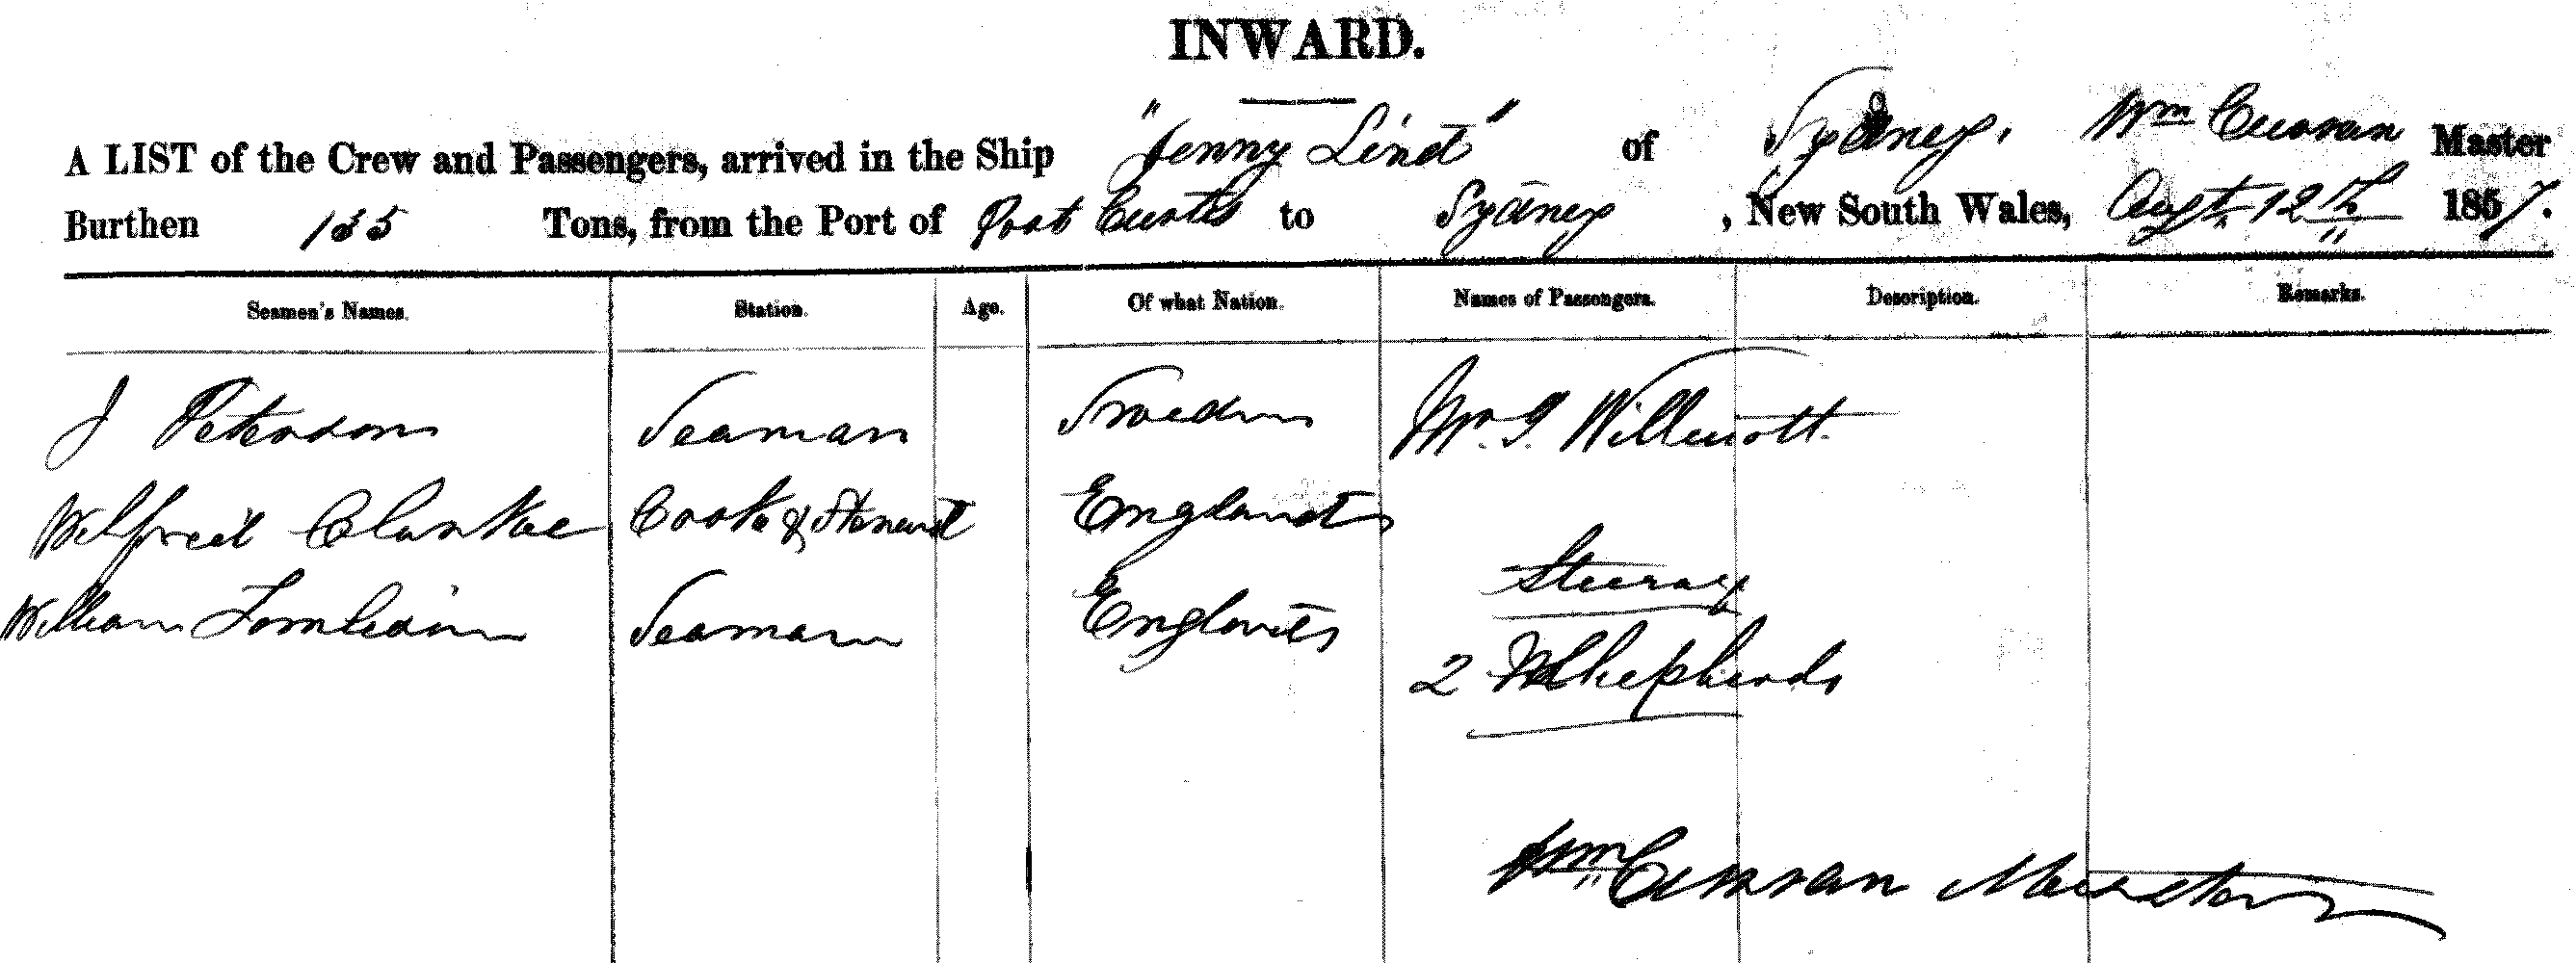 INWARD.
A LIST of the Crew and Passengers, arrived in the Ship "Jenny Lind" of Sydney, Wm Curran Master
Burthen 135 Tons, from the Port of Port Curtis to Sydney, New South Wales, Augt 12th 1857.
Seamen's Names. Station. Age. Of what Nation. Names of Passengers. Description. Remarks.
J Peterson Seaman Sweden Mr. G. Willmott.
Wilfred Clarke Cook & Steward England
Steerage
William Tomlinson Seaman England
2 Shepherds
Wm Curran Master